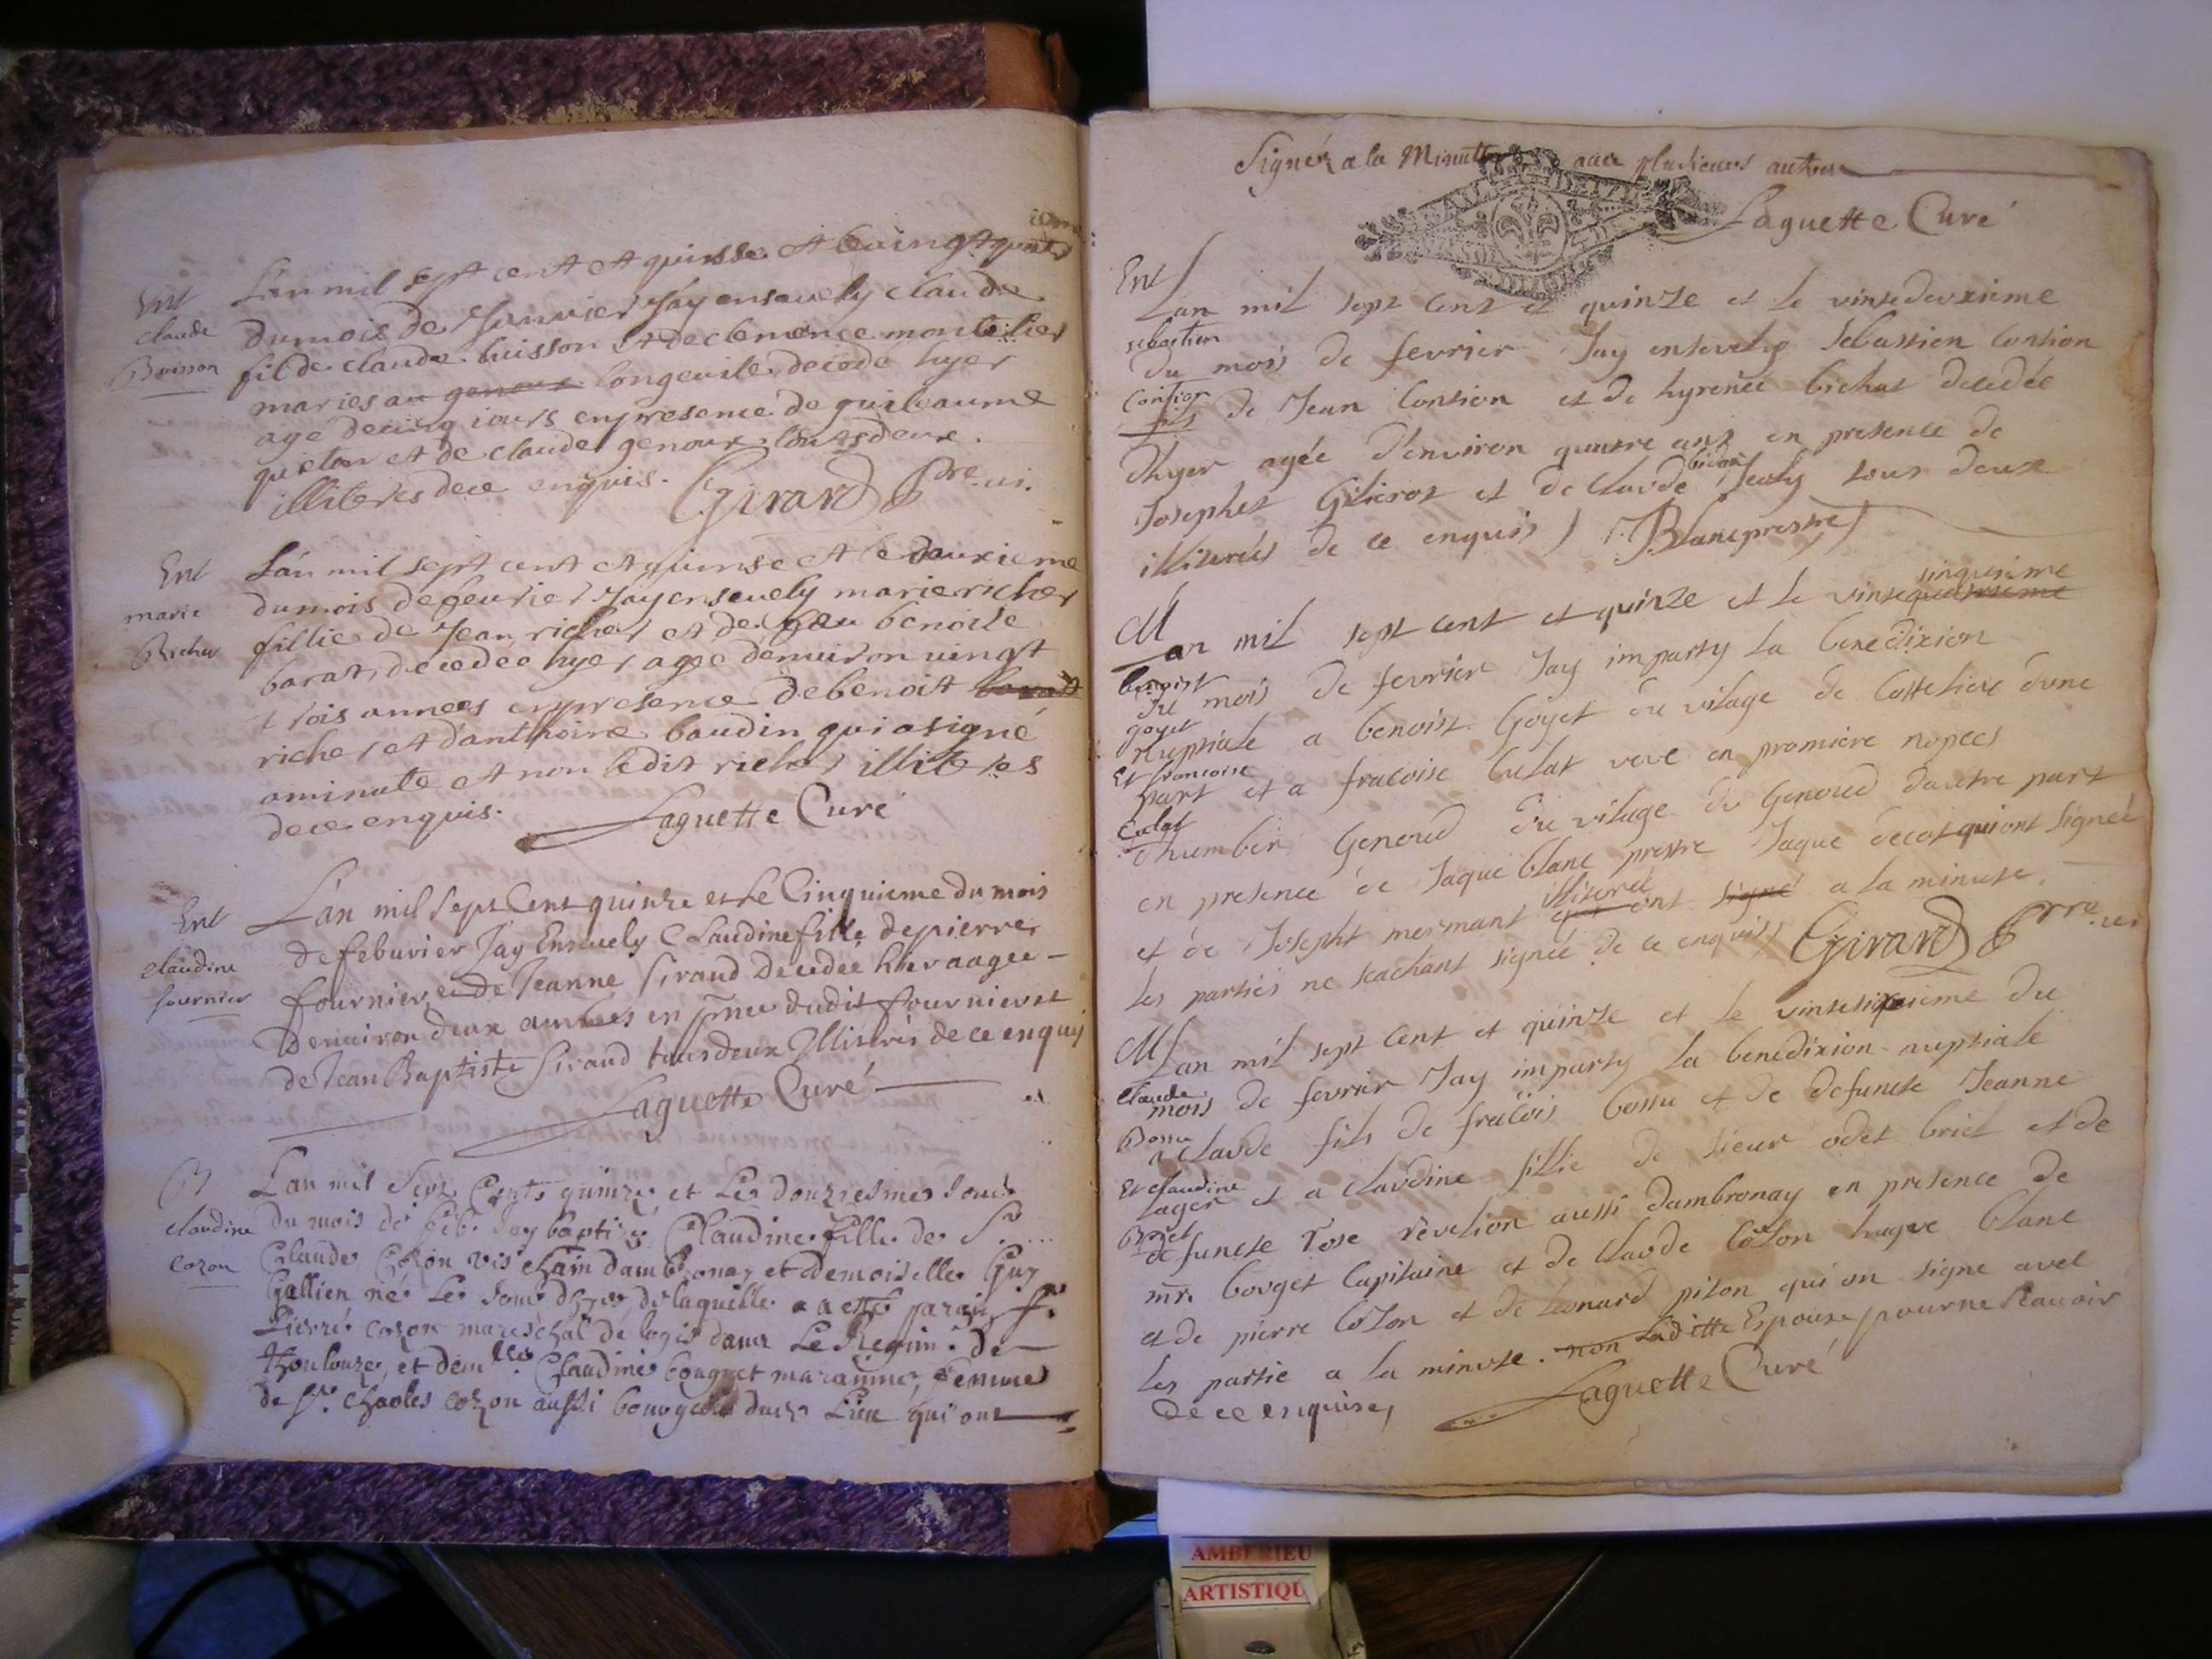 Ent
claude
Buisson
L'an mil sept cent et quinsse et le vingt quatre
du mois de Janvier J'ay ensevely claude
fil de claude buisson et de clemence montelier
maries au genoux longevile decede hyer
age de cinq iours en presence de guileaume
et de claude genoux tous deux
illiteres de ce enquis. Girard ptre vi.
Ent
marie
Richer
L'an mil sept cent et quinse et le deuxieme
du mois de fevrier J'ay ensevely marie richer
fillie de Jean richer et de feu benoite
barat, decedée hyer age d'environ vingt
trois annees en presence de benoit barat
richer et d'anthoine baudin qui a signé
a minute et non ledit richer illiteres
de ce enquis. Laguette Curé
Ent
claudine
fournier
L'an mil sept Cent quinze et le Cinquieme du mois
de feburier J'ay Ensevely Claudine fille de pierre
fournier et de Jeanne Siraud Decedee hier aagee
Denviron deux années en pnce dudit fournier et
de Jean Baptiste Siraud tous deux Illiterés de ce enquis
Laguette Curé
B
claudine
cozon
L'an mil Sept Cents quinze et Le douziesme Jour
du mois de feb. Jay baptisé Claudine fille de Sr
Claude Cozon d'ambronay et demoiselle Guy
Gallien né Le Jour d'hyer de laquelle a esté parain Sr
Pierre cozon mareschal de logis dans Le Regim. de
Thoulouze, et demlle Claudine bouget maraine, femme
de Sr. Charles cozon aussi bourgeois dud. Lieu qui ont
Signéz a la Minutte avec plusieurs autres
Laguette Curé
Ent
sebastien
Contion
Lan mil sept cent et quinze et le vintedeuxieme
du mois de fevrier Jay ensevely Sebastien Contion
fils de Jean Contion et de hyrenée brehat decedée
dhyer agée d'environ quatre ans en presence de
Josephet Gilicrot et de Claude bidan Jeoly tous deux
illiterés de ce enquis J. Blanc prestre
M
benoist
goyet
Et francoise
Culat
Lan mil sept cent et quinze et le vintequatrieme sinquieme
du mois de fevrier Jay imparty la benedixion
Nuptiale a benoist Goyet du vilage de Cosseliere dune
part et a fracoise Culat veve en promière nopces
d'humber Genoud du vilage du Genoud dautre part
en presence de Jaque blanc prestre Jaque decot qui ont signée
et de Joseph mermant illiteré qui ont signé a la minute
les parties ne scachant signée de ce enquis Girard ptre vi
M
claude
Bossu
Et claudine
Briel
Lan mil sept cent et quinze et le vintesixieme du
mois de fevrier Jay imparty la benedixion nuptiale
a Claude fils de fracois bossu et de defuncte Jeanne
lager et a claudine fillie de sieur odet briel et de
defuncte rose revelion aussi dambronay en presence de
mr. bouget Capitaine et de claude Cozon hugue blanc
et de pierre Cozon et de leonard piton qui on signe avec
les partie a la minute. non Laditte Espouse pour ne scavoir
de ce enquise, Laguette Curé
AMBERIEU
ARTISTIQU